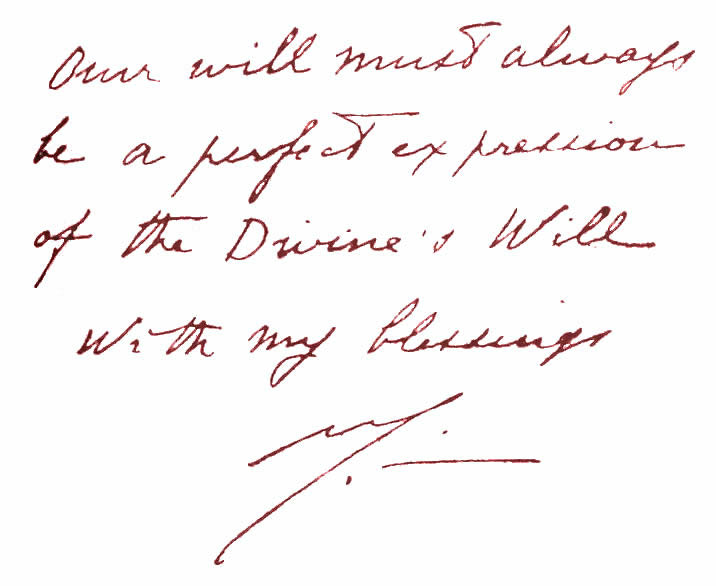 Our will must always
be a perfect expression
of the Divine's Will
With my blessings